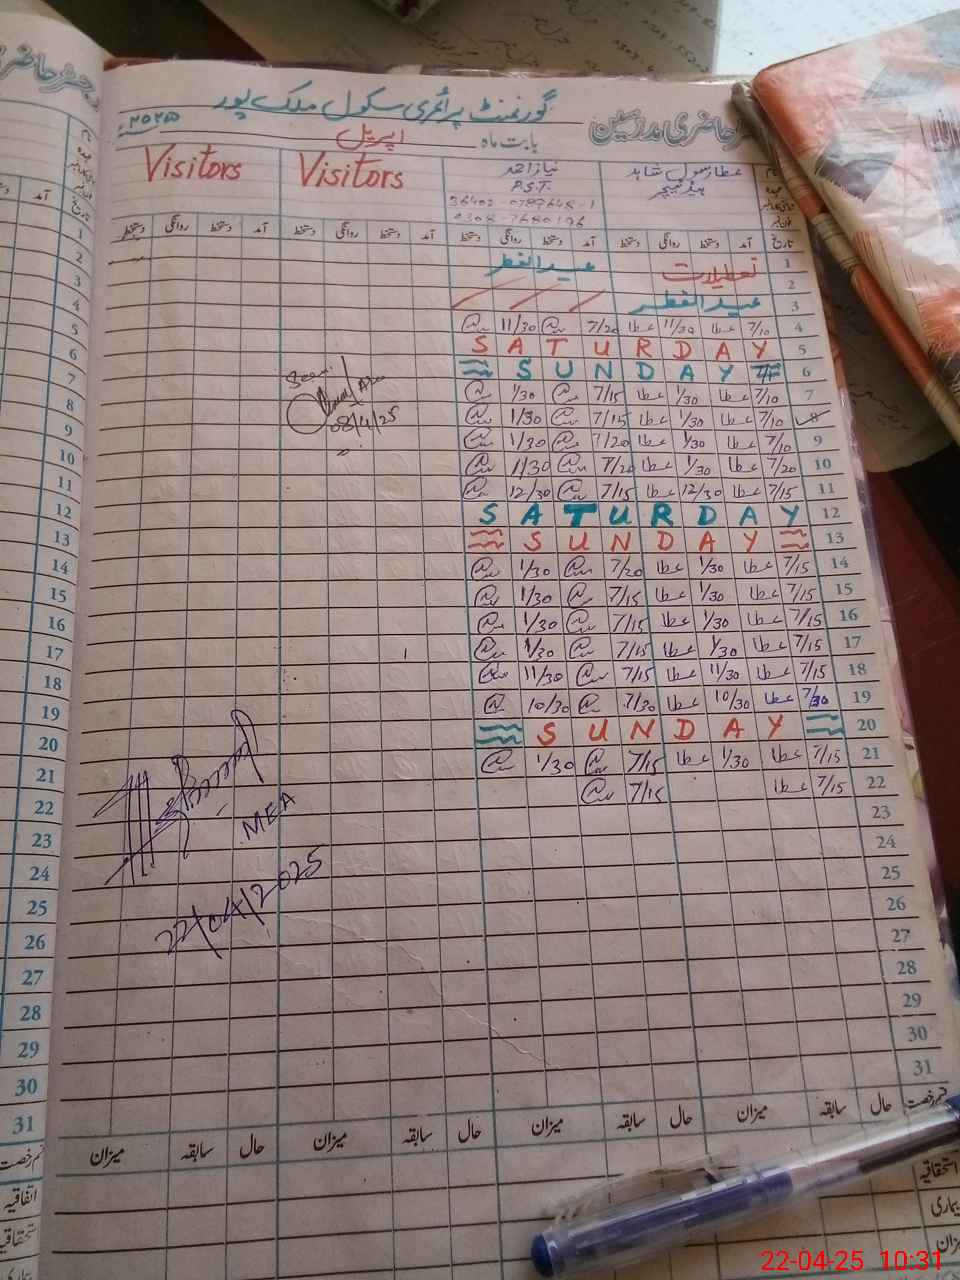 گورنمنٹ پرائمری سکول ملک پور
حاضری مدرسین
بابت ماہ اپریل ۲۰۲۵ء
عطا رسول شاہد نیاز احمد Visitors Visitors
ہیڈ ٹیچر P.S.T.
تاریخ آمد دستخط روانگی دستخط آمد دستخط روانگی دستخط آمد دستخط روانگی دستخط آمد دستخط روانگی دستخط
1 تعطیلات عید الفطر
2
3 عید الفطر
4 7/10 عطا 11/30 عطا 7/20 11/30
5 SATURDAY
6 SUNDAY
7 7/10 عطا 1/30 عطا 7/15 1/30
8 7/10 عطا 1/30 عطا 7/15 1/30
9 7/10 عطا 1/30 عطا 7/20 1/30
10 7/20 عطا 1/30 عطا 7/20 1/30
11 7/15 عطا 12/30 عطا 7/15 12/30
12 SATURDAY
13 SUNDAY
14 7/15 عطا 1/30 عطا 7/20 1/30
15 7/15 عطا 1/30 عطا 7/15 1/30
16 7/15 عطا 1/30 عطا 7/15 1/30
17 7/15 عطا 1/30 عطا 7/15 1/30
18 7/15 عطا 11/30 عطا 7/15 11/30
19 7/30 عطا 10/30 عطا 7/30 10/30
20 SUNDAY
21 7/15 عطا 1/30 عطا 7/15 1/30
22 7/15 عطا 7/15
23
24
25
26
27
28
29
30
31
Seen
08/4/25
MEA
22/04/2025
قسم رخصت حال سابقہ میزان حال سابقہ میزان حال سابقہ میزان حال سابقہ میزان
استحقاقیہ
بیماری
میزان
1
2
3
4
5
6
7
8
9
10
11
12
13
14
15
16
17
18
19
20
21
22
23
24
25
26
27
28
29
30
31
قسم رخصت
اتفاقیہ
استحقاقیہ
بیماری
22-04-25 10:31